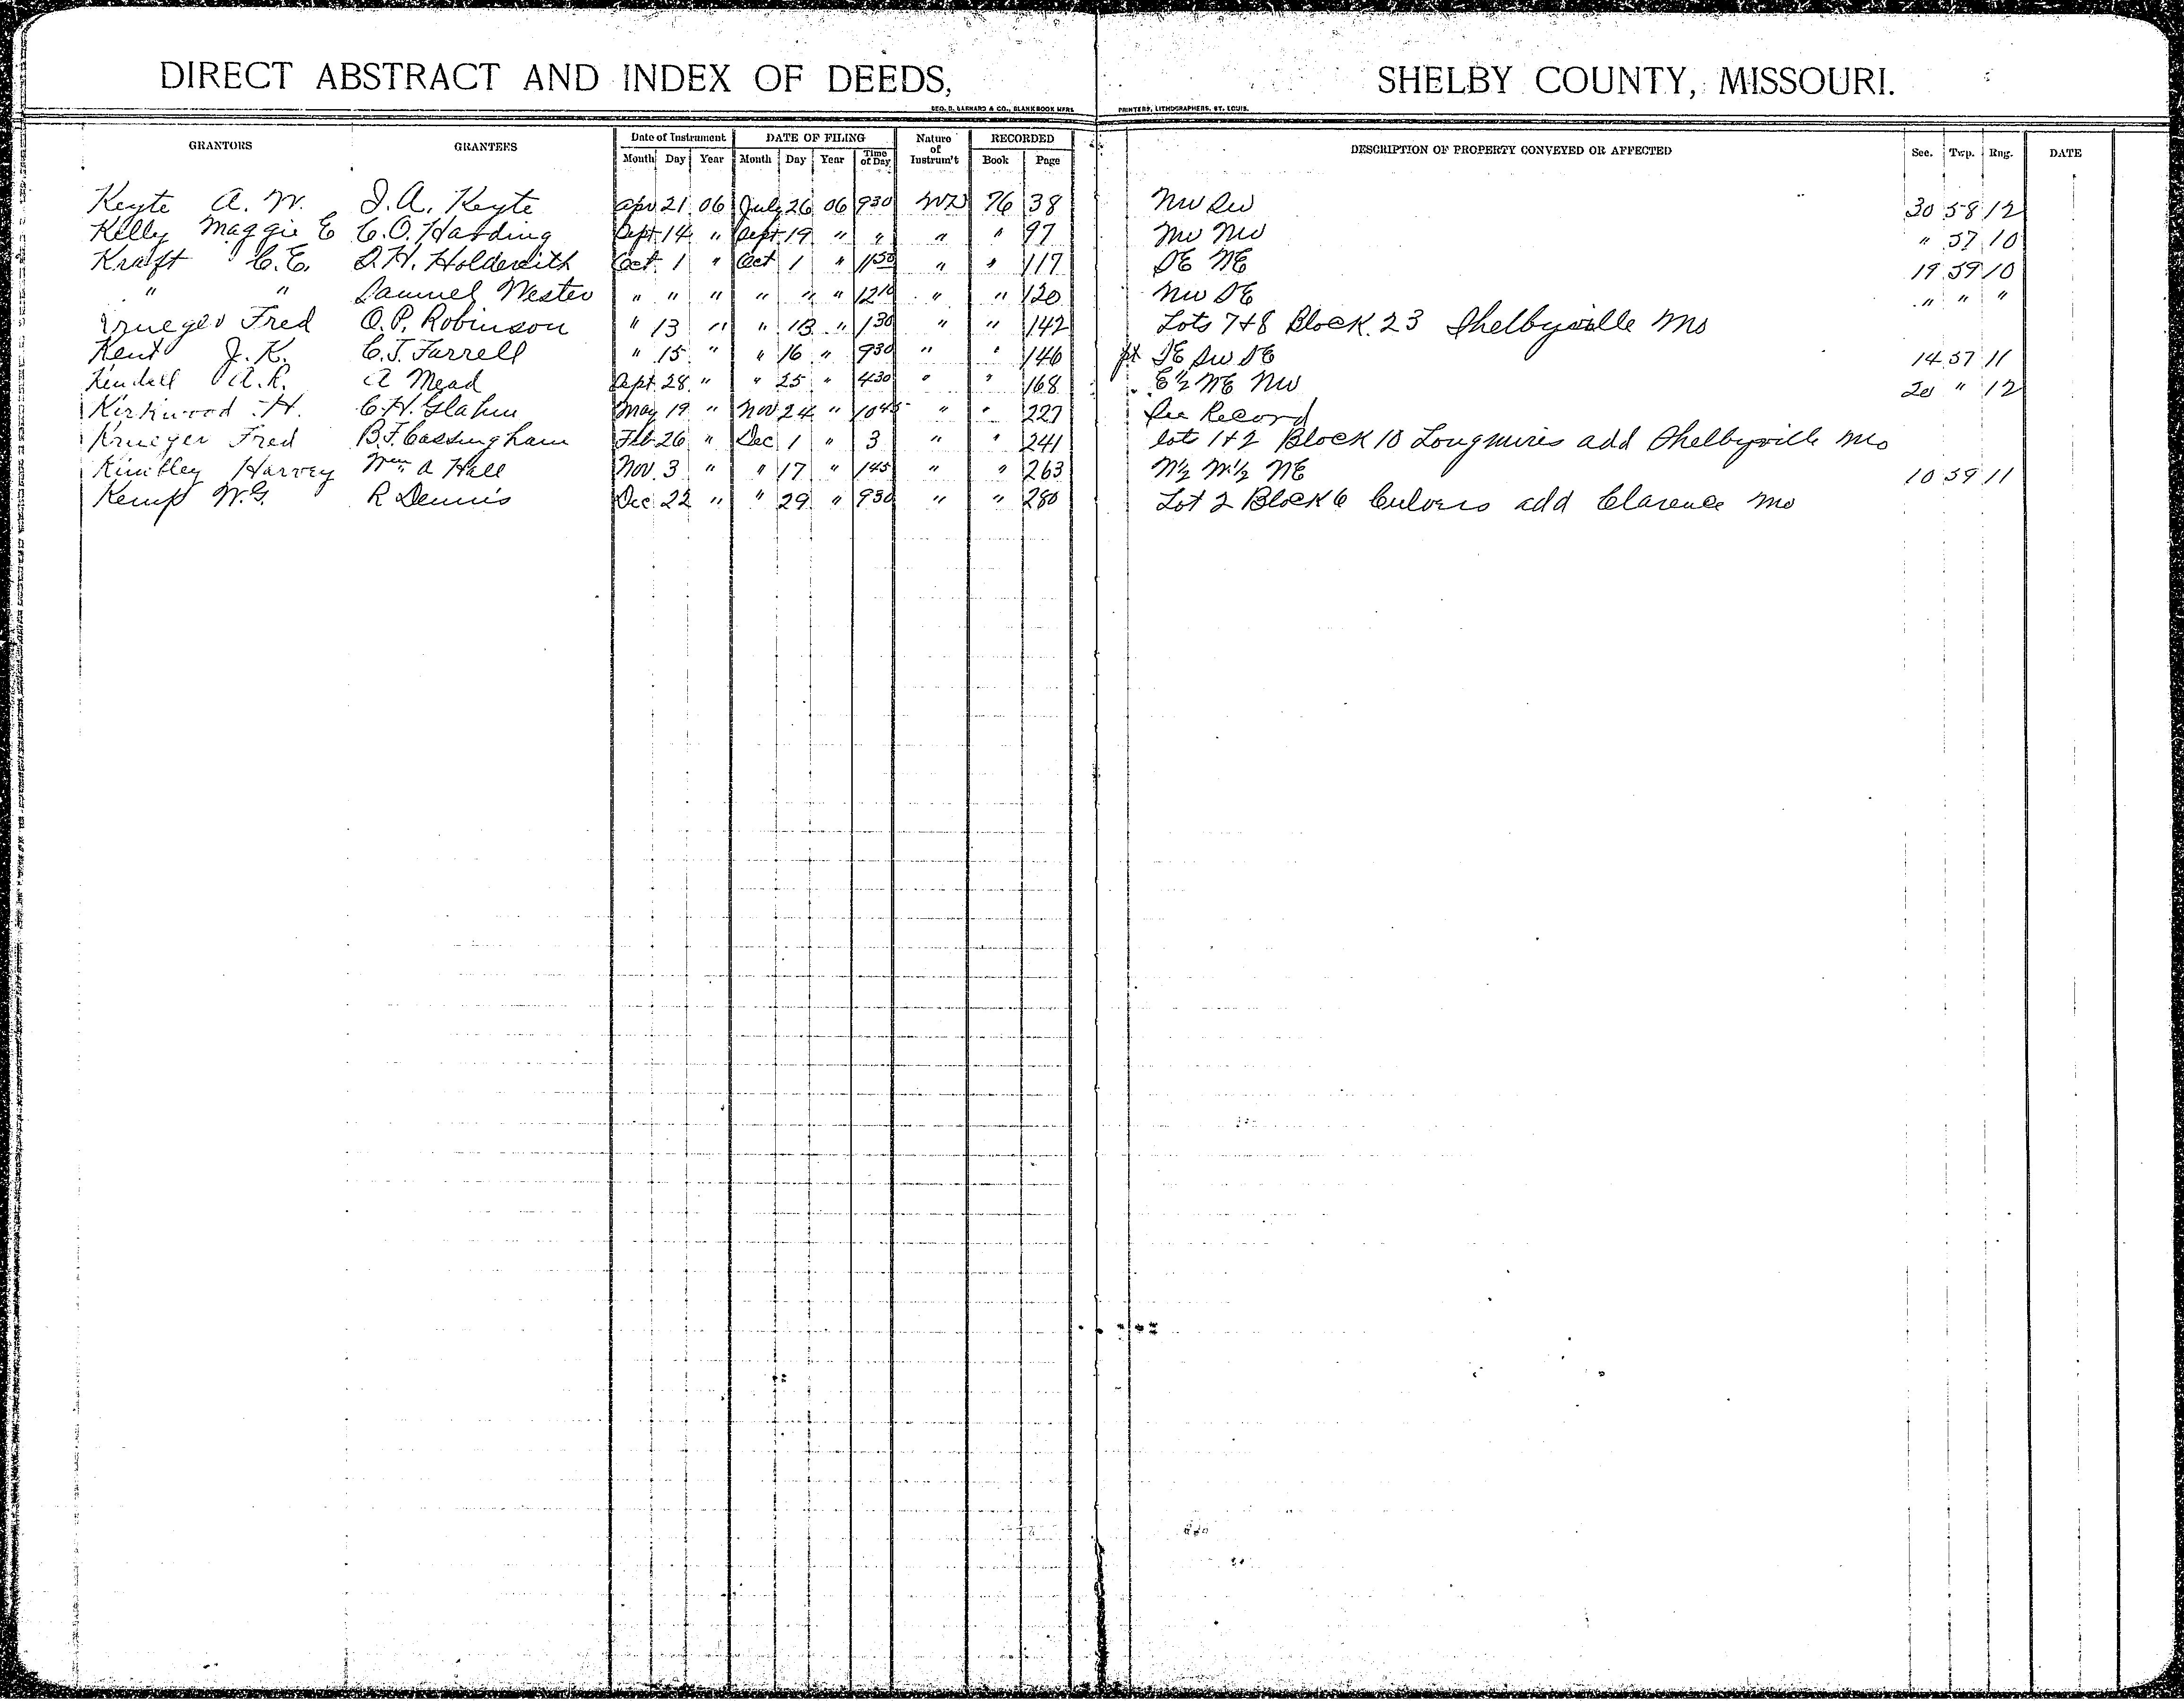 DIRECT ABSTRACT AND INDEX OF DEEDS, SHELBY COUNTY, MISSOURI.
GEO. D. BARNARD & CO., BLANK BOOK MFRS. PRINTERS, LITHOGRAPHERS, ST. LOUIS.
GRANTORS GRANTEES Date of Instrument DATE OF FILING Nature of Instrum't RECORDED DESCRIPTION OF PROPERTY CONVEYED OR AFFECTED Sec. Twp. Rng. DATE
Month Day Year Month Day Year Time of Day Book Page
Keyte A. W. I. A. Keyte Apr 21 06 July 26 06 930 WD 76 38 NW SW 30 58 12
Kelly Maggie E C. O. Harding Sept 14 " Sept 19 " " " " 97 NW NW " 57 10
Kraft C. E. D. H. Holdersith Oct 1 " Oct 1 " 1150 " " 117 SE NE 19 59 10
" " Samuel Wester " " " " " " 1210 " " 120 NW SE " " "
Krueger Fred O. P. Robinson " 13 " " 13 " 130 " " 142 Lots 7 + 8 Block 23 Shelbyville Mo
Kent J. K. C. J. Farrell " 15 " " 16 " 930 " " 146 pt SE SW SE 14 57 11
Kendall A. R. A Mead Sept 28 " " 25 " 430 " " 168 E½ NE NW 20 " 12
Kirkwood H. C. H. Glahn May 19 " Nov 24 " 1045 " " 227 See Record
Krueger Fred B. F. Cassingham Feb 26 " Dec 1 " 3 " " 241 lots 1 + 2 Block 10 Longmires add Shelbyville Mo
Kimbley Harvey Wm A Hall Nov. 3 " " 17 " 145 " " 263 N½ N½ NE 10 59 11
Kemp W. G. R Dennis Dec 22 " " 29 " 930 " " 280 Lot 2 Block 6 Culvers add Clarence Mo